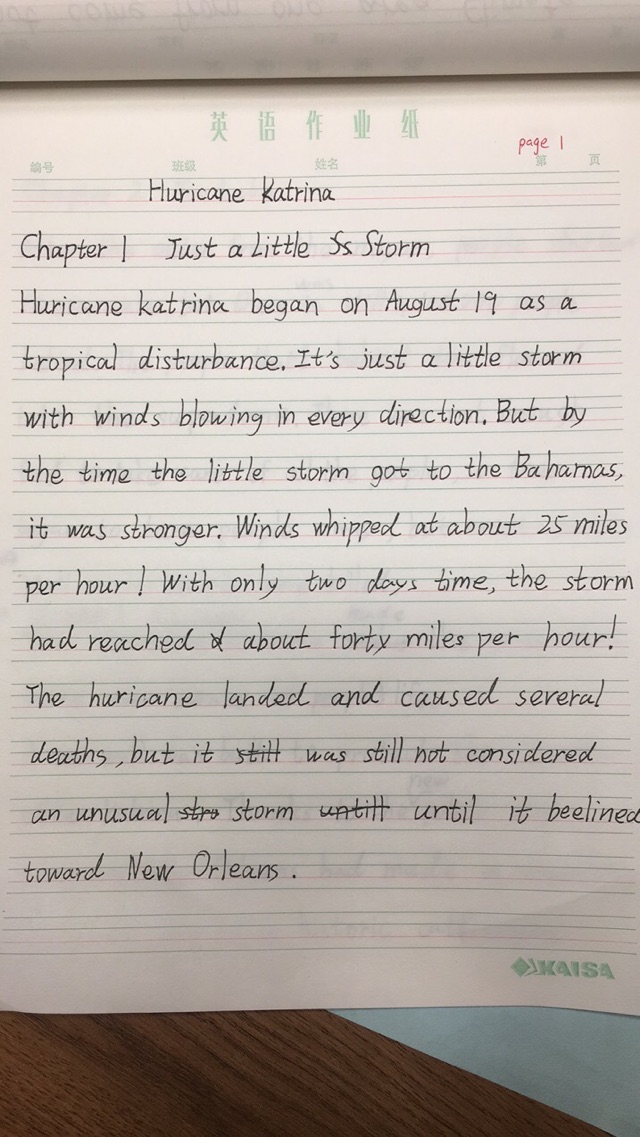 英语作业纸
page 1
编号 班级 姓名 第 页
Huricane Katrina
Chapter 1 Just a Little Ss Storm
Huricane katrina began on August 19 as a
tropical disturbance. It's just a little storm
with winds blowing in every direction. But by
the time the little storm got to the Bahamas,
it was stronger. Winds whipped at about 25 miles
per hour! With only two days time, the storm
had reached about forty miles per hour!
The huricane landed and caused several
deaths, but it still was still not considered
an unusual stro storm untill until it beelined
toward New Orleans.
KAISA